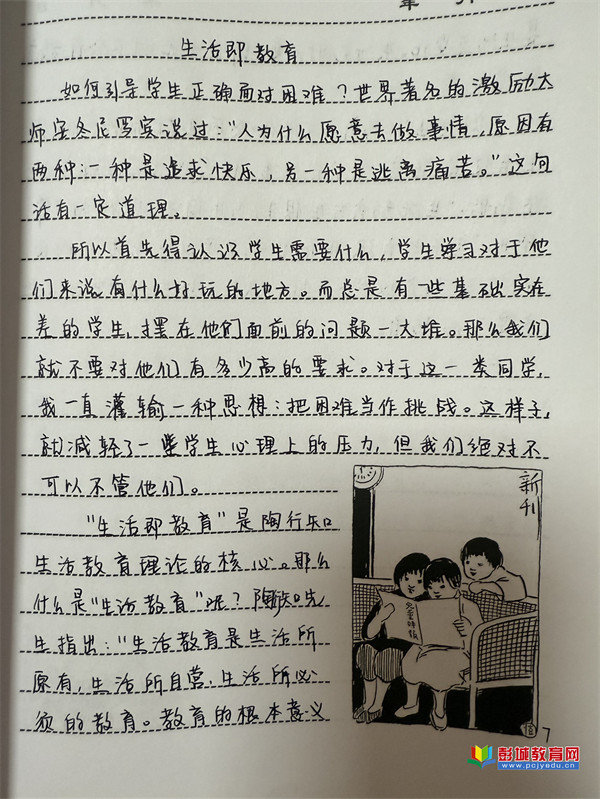 生活即教育
如何引导学生正确面对困难？世界著名的激励大
师安东尼罗宾说过："人为什么愿意去做事情，原因有
两种：一种是追求快乐，另一种是逃离痛苦。"这句
话有一定道理。
所以首先得认识学生需要什么，学生学习对于他
们来说有什么好玩的地方。而总是有一些基础实在
差的学生，摆在他们面前的问题一大堆。那么我们
就不要对他们有多少高的要求。对于这一类同学，
我一直灌输一种思想：把困难当作挑战。这样子，
就减轻了一些学生心理上的压力，但我们绝对不
可以不管他们。
"生活即教育"是陶行知
生活教育理论的核心。那么
什么是"生活教育"呢？陶行知先
生指出："生活教育是生活所
原有，生活所自营，生活所必
须的教育。教育的根本意义
新刊
儿童时报
7
彭城教育网
www.pcjyedu.cn